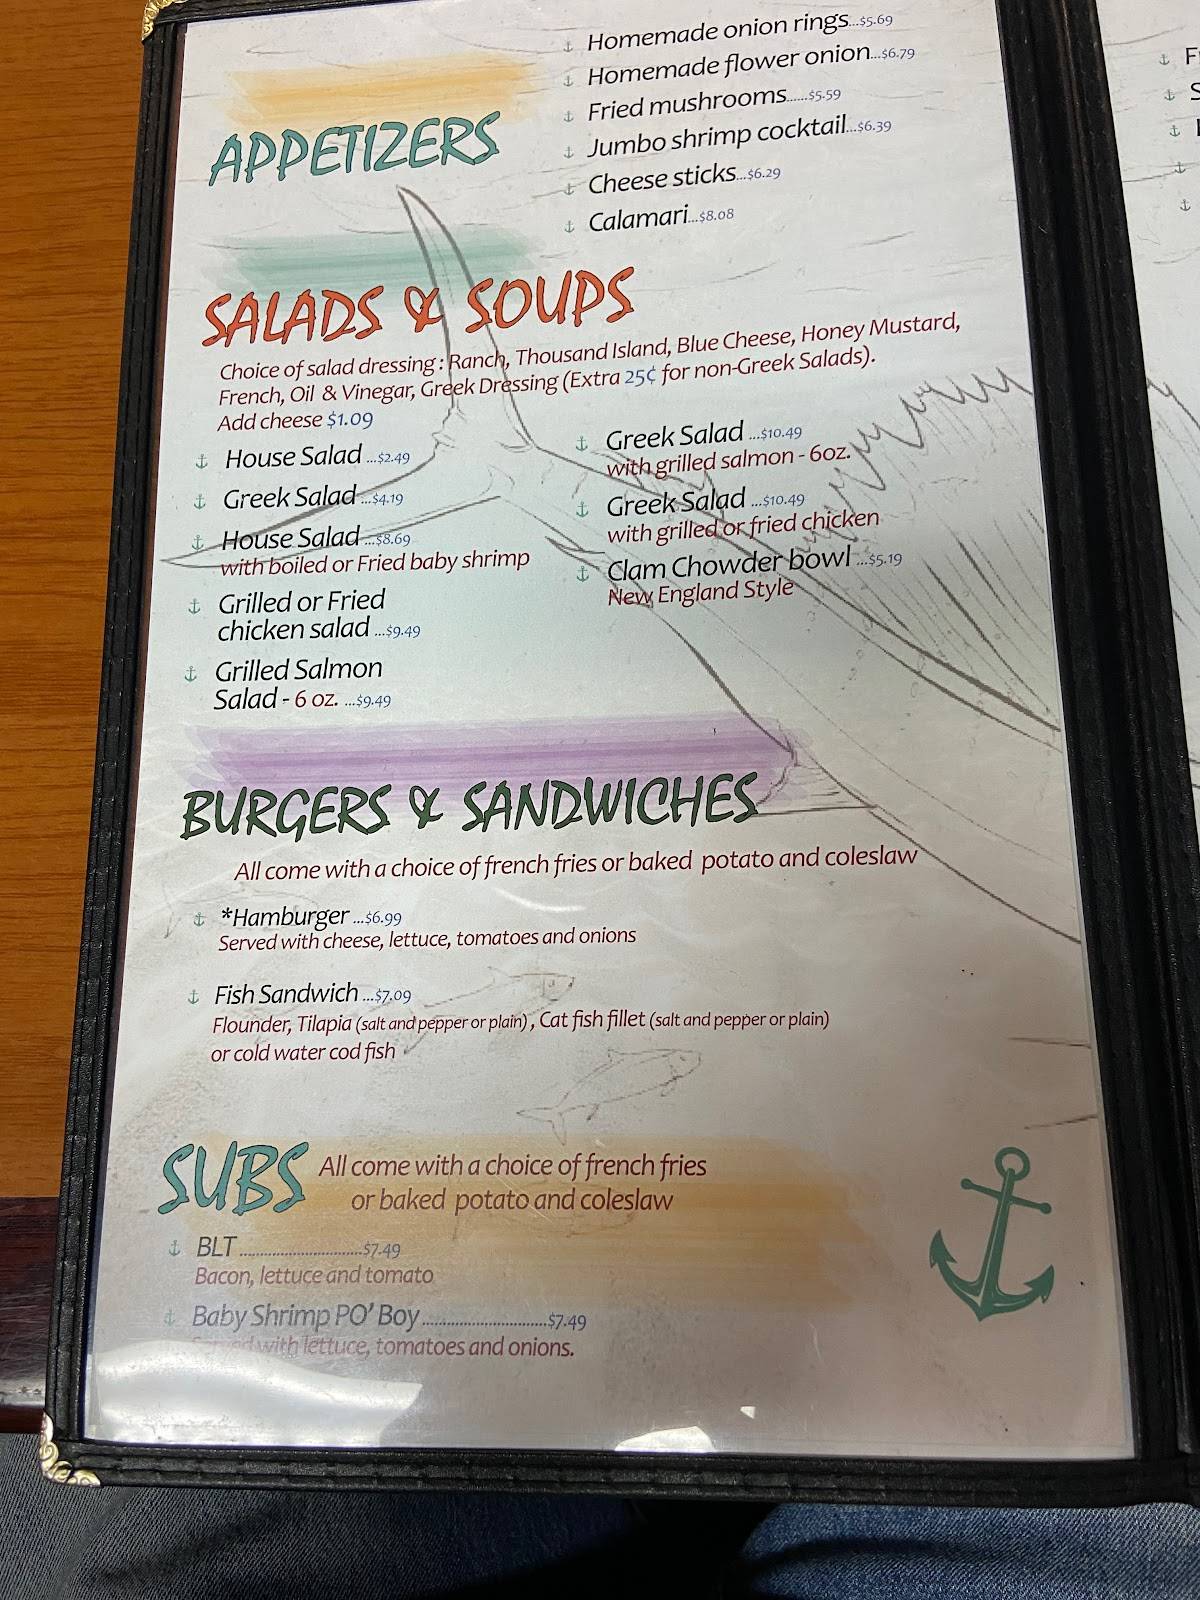 Homemade onion rings...$5.69
Homemade flower onion...$6.79
Fried mushrooms......$5.59
Jumbo shrimp cocktail...$6.39
Cheese sticks...$6.29
Calamari...$8.08
APPETIZERS
SALADS & SOUPS
Choice of salad dressing : Ranch, Thousand Island, Blue Cheese, Honey Mustard,
French, Oil & Vinegar, Greek Dressing (Extra 25¢ for non-Greek Salads).
Add cheese $1.09
House Salad ...$2.49
Greek Salad ...$4.19
House Salad ...$8.69
with boiled or Fried baby shrimp
Grilled or Fried
chicken salad ...$9.49
Grilled Salmon
Salad - 6 oz. ...$9.49
Greek Salad ...$10.49
with grilled salmon - 6oz.
Greek Salad ...$10.49
with grilled or fried chicken
Clam Chowder bowl ...$5.19
New England Style
BURGERS & SANDWICHES
All come with a choice of french fries or baked potato and coleslaw
*Hamburger ...$6.99
Served with cheese, lettuce, tomatoes and onions
Fish Sandwich ...$7.09
Flounder, Tilapia (salt and pepper or plain) , Cat fish fillet (salt and pepper or plain)
or cold water cod fish
SUBS
All come with a choice of french fries
or baked potato and coleslaw
BLT ..............................$7.49
Bacon, lettuce and tomato
Baby Shrimp PO' Boy ..............................$7.49
Served with lettuce, tomatoes and onions.